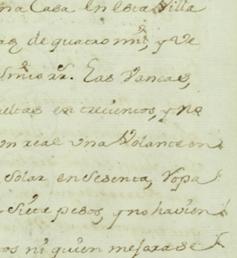 na Casa en esta Villa
de quatro mil, y de
rr. Las Vancas,
en trecientos, y no
un real una Volante en
Solar en Sesenta, ropa
siete pesos, y no havien
os ni quien mejorase